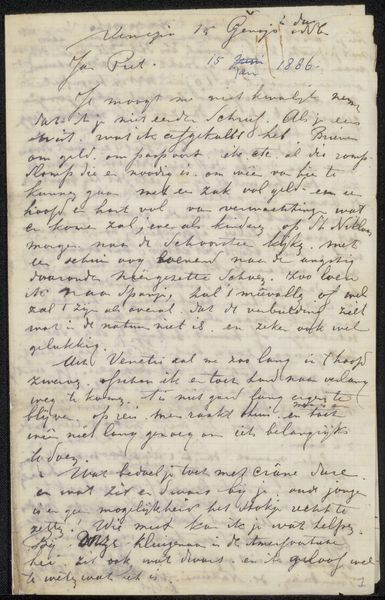 Venezia 15 1886
15 Juni Jan 1886.
Jan Piet.
Je moogt me niet kwalijk nemen
dat ik je niet eerder schreef. Als je eens
wist wat ik afgetobt heb. Brieven
om geld. om paspoort etc etc. al die romp
slomp die er noodig is. om weer van hier te
kunnen gaan met een zak vol geld. en een
hoofd & hart vol van verwachting wat
er komen zal, even als kinderen op St Nikolaas
morgen naar de Schoorsteen kijken met
een schuin oog
neergezette Schoen. Zoo loer
ik naar Spanje, zal 't meevallen of wel
zal 't zijn als overal. dat de verbeelding ziet
wat in de natuur niet is. en zeker ook wel
gelukkig.
Uit Venetië zal me zoo lang in 't hoofd
ofschoon ik er toch hard naar verlang
weg te komen. 't is niet goed lang ergens te
blijven op reis. men raakt thuis en toch
weer niet lang genoeg om iets belangrijks
te doen.
Wat bedoel je toch met crâne dure
en wat zit er dwars bij je oude jongen
is er geen mogelijkheid het stokje recht te
zetten? Wie weet kan ik je wat helpen.
Bij onze kluizenaar in de
hier zit ook wat dwars. en ik geloof wel
te weten wat het is.
1